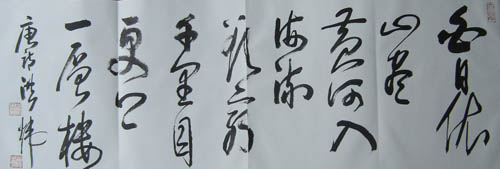 白日依
山尽
黄河入
海流
欲穷
千里目
更上
一层楼
唐诗